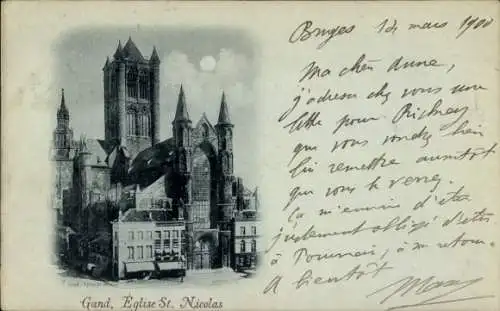 Bruges 14 mars 1900
Ma chère Anne,
j'adresse chez vous une
lettre pour Richney
que vous voudrez bien
lui remettre aussitôt
que vous le verrez.
Ça m'ennuie d'être
justement obligé d'être
à Tournai, à mon retour.
A bientôt
Gand, Église St. Nicolas